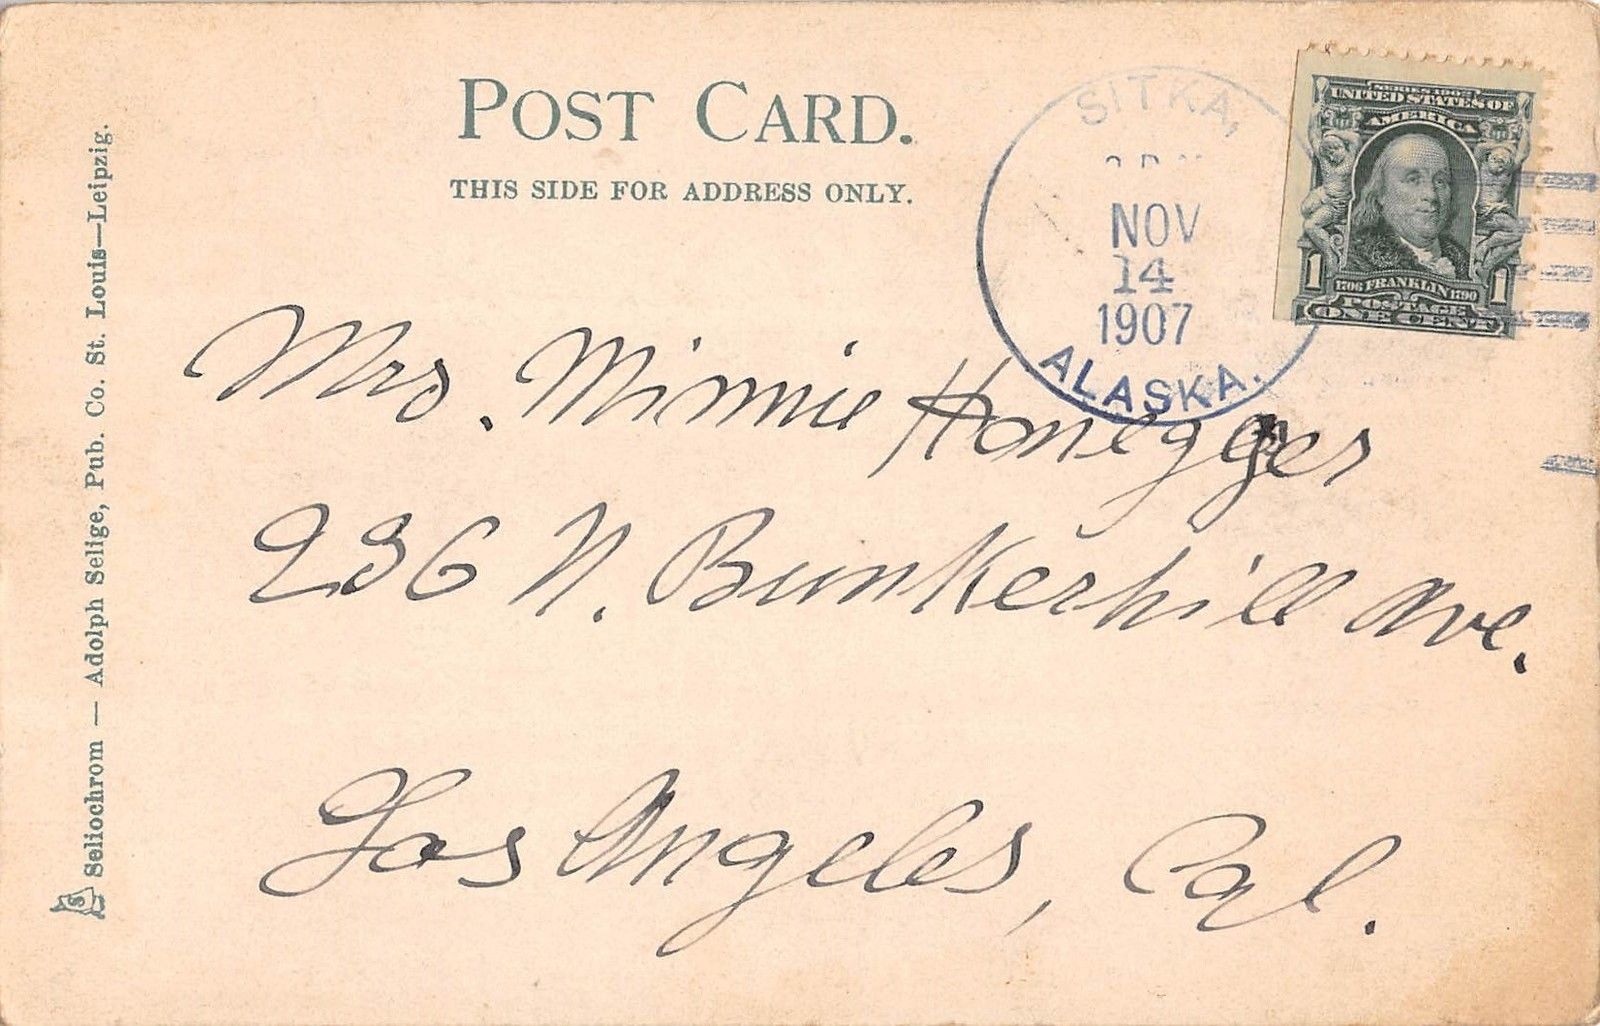 POST CARD.
THIS SIDE FOR ADDRESS ONLY.
Seliochrom — Adolph Selige, Pub. Co. St. Louis—Leipzig.
S
SITKA,
NOV
14
1907
ALASKA.
SERIES 1902
UNITED STATES OF
AMERICA
1 1
1706 FRANKLIN 1790
POSTAGE
ONE CENT
Mrs. Minnie Honegger
236 N. Bunkerhill Ave.
Los Angeles, Cal.